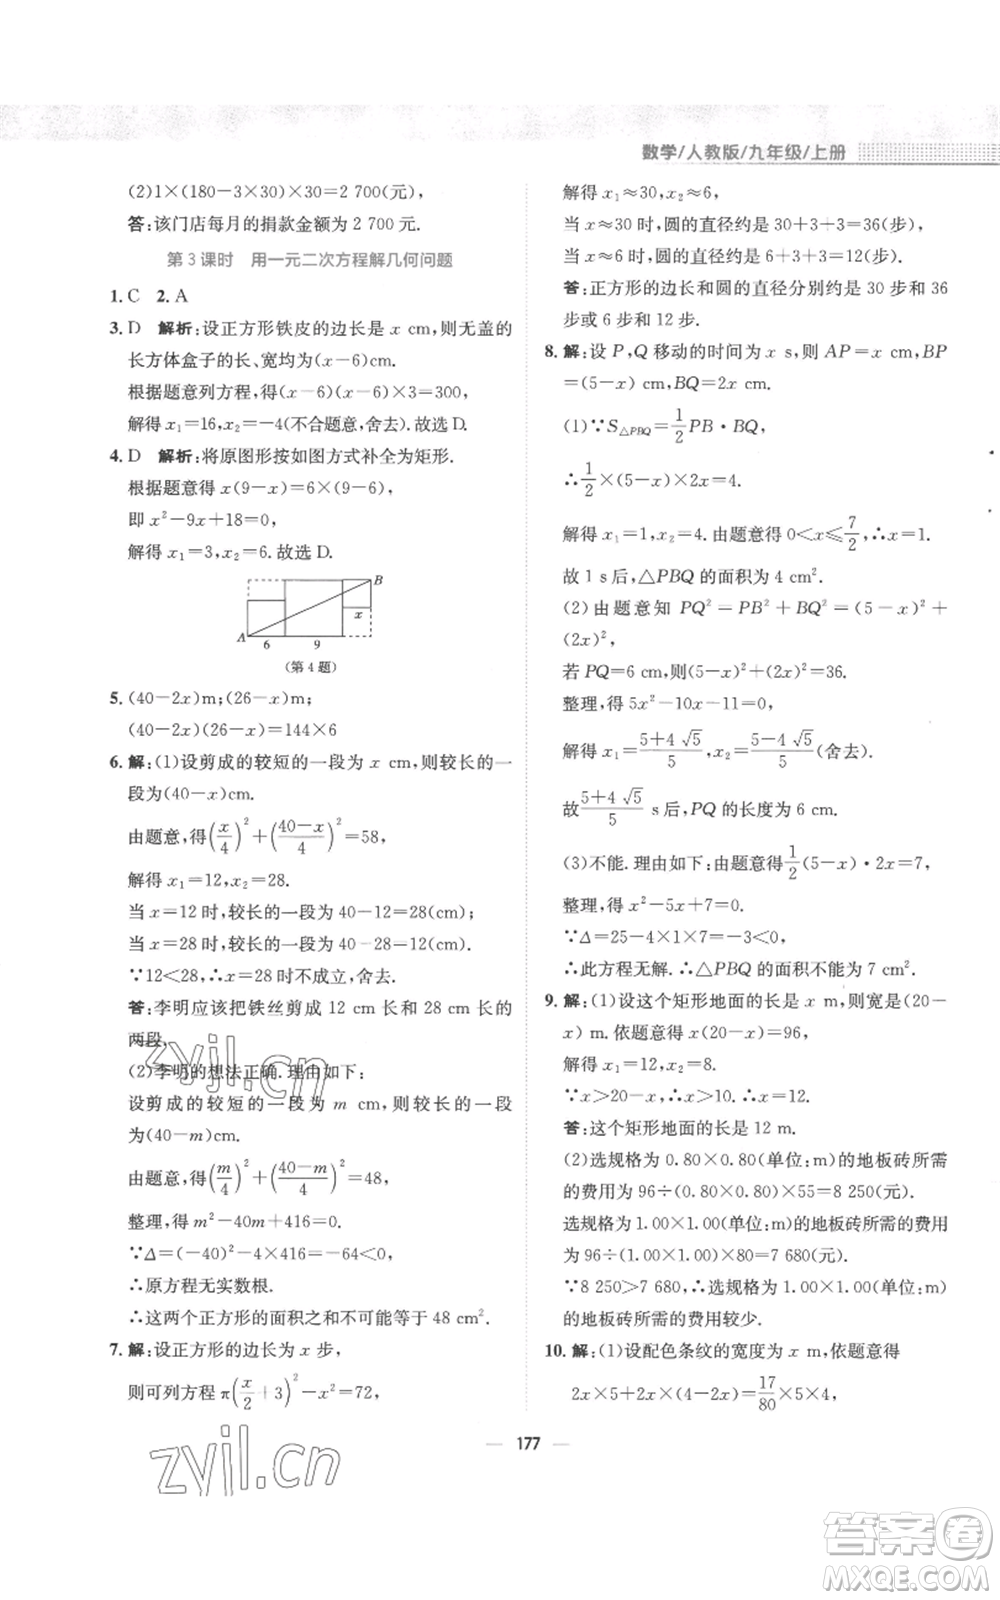 数学/人教版/九年级/上册
(2)1×(180-3×30)×30=2 700(元),
答:该门店每月的捐款金额为 2 700 元.
第 3 课时 用一元二次方程解几何问题
1. C 2. A
3. D 解析:设正方形铁皮的边长是 x cm,则无盖的
长方体盒子的长、宽均为(x-6)cm.
根据题意列方程,得(x-6)(x-6)×3=300,
解得 x₁=16,x₂=-4(不合题意,舍去).故选 D.
4. D 解析:将原图形按如图方式补全为矩形.
根据题意得 x(9-x)=6×(9-6),
即 x²-9x+18=0,
解得 x₁=3,x₂=6.故选 D.
B
x
A
6 9
(第 4 题)
5. (40-2x)m;(26-x)m;
(40-2x)(26-x)=144×6
6. 解:(1)设剪成的较短的一段为 x cm,则较长的一
段为(40-x)cm.
由题意,得(x/4)²+((40-x)/4)²=58,
解得 x₁=12,x₂=28.
当 x=12 时,较长的一段为 40-12=28(cm);
当 x=28 时,较长的一段为 40-28=12(cm).
∵12<28,∴x=28 时不成立,舍去.
答:李明应该把铁丝剪成 12 cm 长和 28 cm 长的
两段.
(2)李明的想法正确.理由如下:
设剪成的较短的一段为 m cm,则较长的一段
为(40-m)cm.
由题意,得(m/4)²+((40-m)/4)²=48,
整理,得 m²-40m+416=0.
∵Δ=(-40)²-4×416=-64<0,
∴原方程无实数根.
∴这两个正方形的面积之和不可能等于 48 cm².
7. 解:设正方形的边长为 x 步,
则可列方程 π(x/2+3)²-x²=72,
解得 x₁≈30,x₂≈6,
当 x≈30 时,圆的直径约是 30+3+3=36(步),
当 x≈6 时,圆的直径约是 6+3+3=12(步).
答:正方形的边长和圆的直径分别约是 30 步和 36
步或 6 步和 12 步.
8. 解:设 P,Q 移动的时间为 x s,则 AP=x cm,BP
=(5-x) cm,BQ=2x cm.
(1)∵S△PBQ=1/2 PB·BQ,
∴1/2×(5-x)×2x=4.
解得 x₁=1,x₂=4.由题意得 0<x≤7/2,∴x=1.
故 1 s 后,△PBQ 的面积为 4 cm².
(2)由题意知 PQ²=PB²+BQ²=(5-x)²+
(2x)²,
若 PQ=6 cm,则(5-x)²+(2x)²=36.
整理,得 5x²-10x-11=0,
解得 x₁=(5+4√5)/5,x₂=(5-4√5)/5(舍去).
故(5+4√5)/5 s 后,PQ 的长度为 6 cm.
(3)不能.理由如下:由题意得1/2(5-x)·2x=7,
整理,得 x²-5x+7=0.
∵Δ=25-4×1×7=-3<0,
∴此方程无解.∴△PBQ 的面积不能为 7 cm².
9. 解:(1)设这个矩形地面的长是 x m,则宽是(20-
x) m.依题意得 x(20-x)=96,
解得 x₁=12,x₂=8.
∵x>20-x,∴x>10.∴x=12.
答:这个矩形地面的长是 12 m.
(2)选规格为 0.80×0.80(单位:m)的地板砖所需
的费用为 96÷(0.80×0.80)×55=8 250(元).
选规格为 1.00×1.00(单位:m)的地板砖所需的费用
为 96÷(1.00×1.00)×80=7 680(元).
∵8 250>7 680,∴选规格为 1.00×1.00(单位:m)
的地板砖所需的费用较少.
10. 解:(1)设配色条纹的宽度为 x m,依题意得
2x×5+2x×(4-2x)=17/80×5×4,
177
zyjl.cn
zyjl.cn
答案卷
MXQE.COM